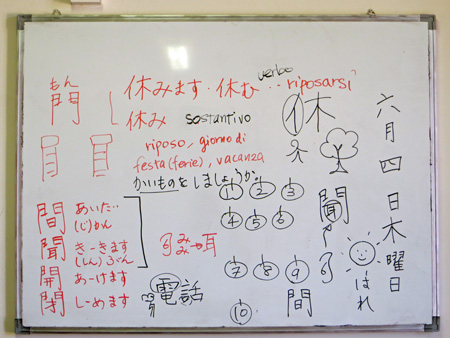 もん
門
休みます・休む
verbo
riposarsi
休み sostantivo
riposo, giorno di
festa(ferie), vacanza
かいものをしましょうか。
間 あいだ…
(じ)かん
聞 き-きます
(しん)ぶん
開 あ-けます
閉 し-めます
みみ
耳
電話
休
1 2 3
4 5 6
7 8 9
10
聞
間
六月四日木曜日
はれ